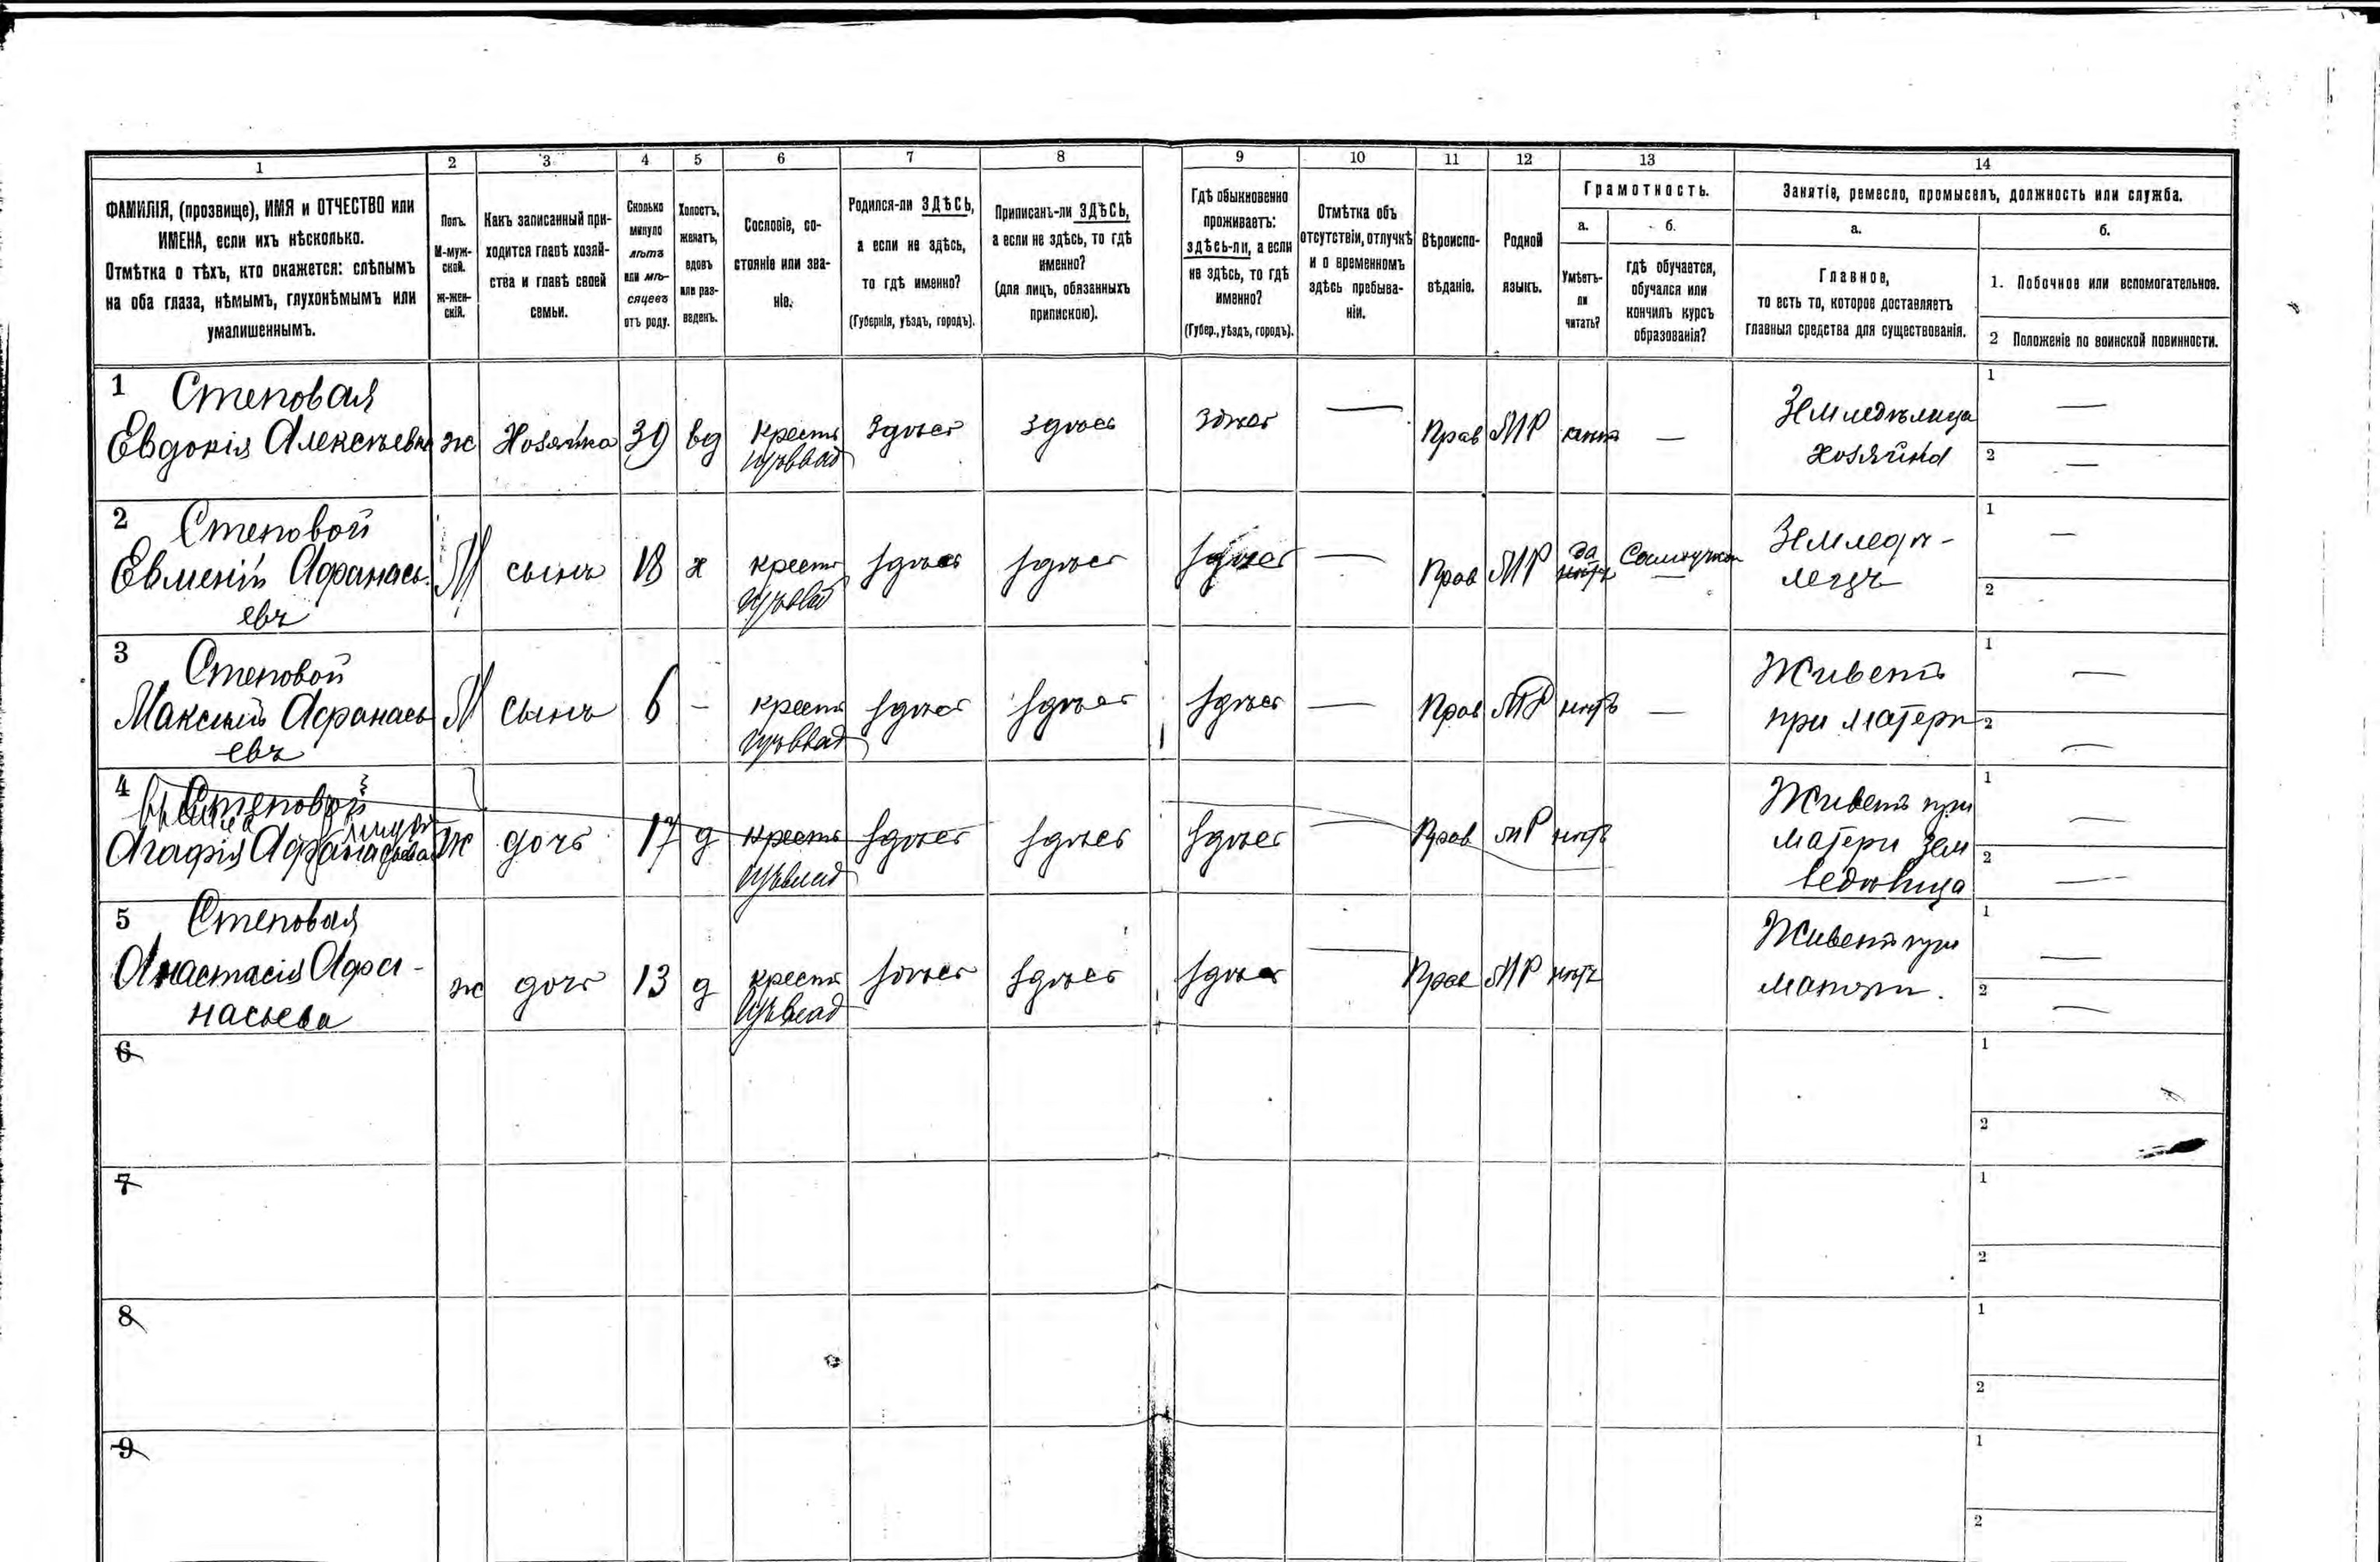 1 2 3 4 5 6 7 8 9 10 11 12 13 14
ФАМИЛІЯ, (прозвище), ИМЯ и ОТЧЕСТВО или
ИМЕНА, если ихъ нѣсколько.
Отмѣтка о тѣхъ, кто окажется: слѣпымъ
на оба глаза, нѣмымъ, глухонѣмымъ или
умалишеннымъ.
Полъ.
М-муж-
ской.
ж-жен-
скій.
Какъ записанный при-
ходится главѣ хозяй-
ства и главѣ своей
семьи.
Сколько
минуло
лѣтъ
или мѣ-
сяцевъ
отъ роду.
Холостъ,
женатъ,
вдовъ
или раз-
веденъ.
Сословіе, со-
стояніе или зва-
ніе.
Родился-ли ЗДѢСЬ,
а если не здѣсь,
то гдѣ именно?
(Губернія, уѣздъ, городъ).
Приписанъ-ли ЗДѢСЬ,
а если не здѣсь, то гдѣ
именно?
(для лицъ, обязанныхъ
припискою).
Гдѣ обыкновенно
проживаетъ:
здѣсь-ли, а если
не здѣсь, то гдѣ
именно?
(Губер., уѣздъ, городъ).
Отмѣтка объ
отсутствіи, отлучкѣ
и о временномъ
здѣсь пребыва-
ніи.
Вѣроиспо-
вѣданіе.
Родной
языкъ.
Грамотность.
а. б.
Умѣетъ-
ли
читать?
гдѣ обучается,
обучался или
кончилъ курсъ
образованія?
Занятіе, ремесло, промыселъ, должность или служба.
а. б.
Главное,
то есть то, которое доставляетъ
главныя средства для существованія.
1. Побочное или вспомогательное.
2 Положеніе по воинской повинности.
1 Степовая
Евдокія Алексѣевна ж Хозяйка 39 вд крест здѣсь здѣсь здѣсь — Прав МР нѣтъ —
Земледѣлица
хозяйка
1 —
2 —
2 Степовой
Евменій Афанась-
евъ
М сынъ 18 х крест здѣсь здѣсь здѣсь — Прав МР да
Земледѣ-
лецъ
1 —
2
3 Степовой
Максимъ Афанась
евъ
М сынъ 6 - крест здѣсь здѣсь здѣсь — Прав МР нѣтъ —
Живетъ
при матери
1 —
2 —
4 Степовой
Агафія Афанасьева ж дочь 17 д крест здѣсь здѣсь здѣсь — Прав МР нѣтъ
Живетъ при
матери
1 —
2 —
5 Степовая
Анастасія Афа-
насьева
ж дочь 13 д крест здѣсь здѣсь здѣсь — Прав МР нѣтъ
Живетъ при
матери.
1 —
2 —
6
1
2
7
1
2
8
1
2
9
1
2